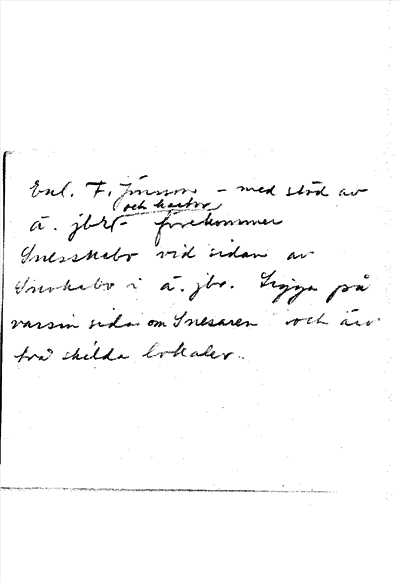 Enl. F. Jonsson - med stöd av
och kartor
ä. jbr - förekommer
Snesskebo vid sidan av
Snokebo i ä. jbr. Ligga på
varsin sida om Snesaren och äro
två skilda lokaler.